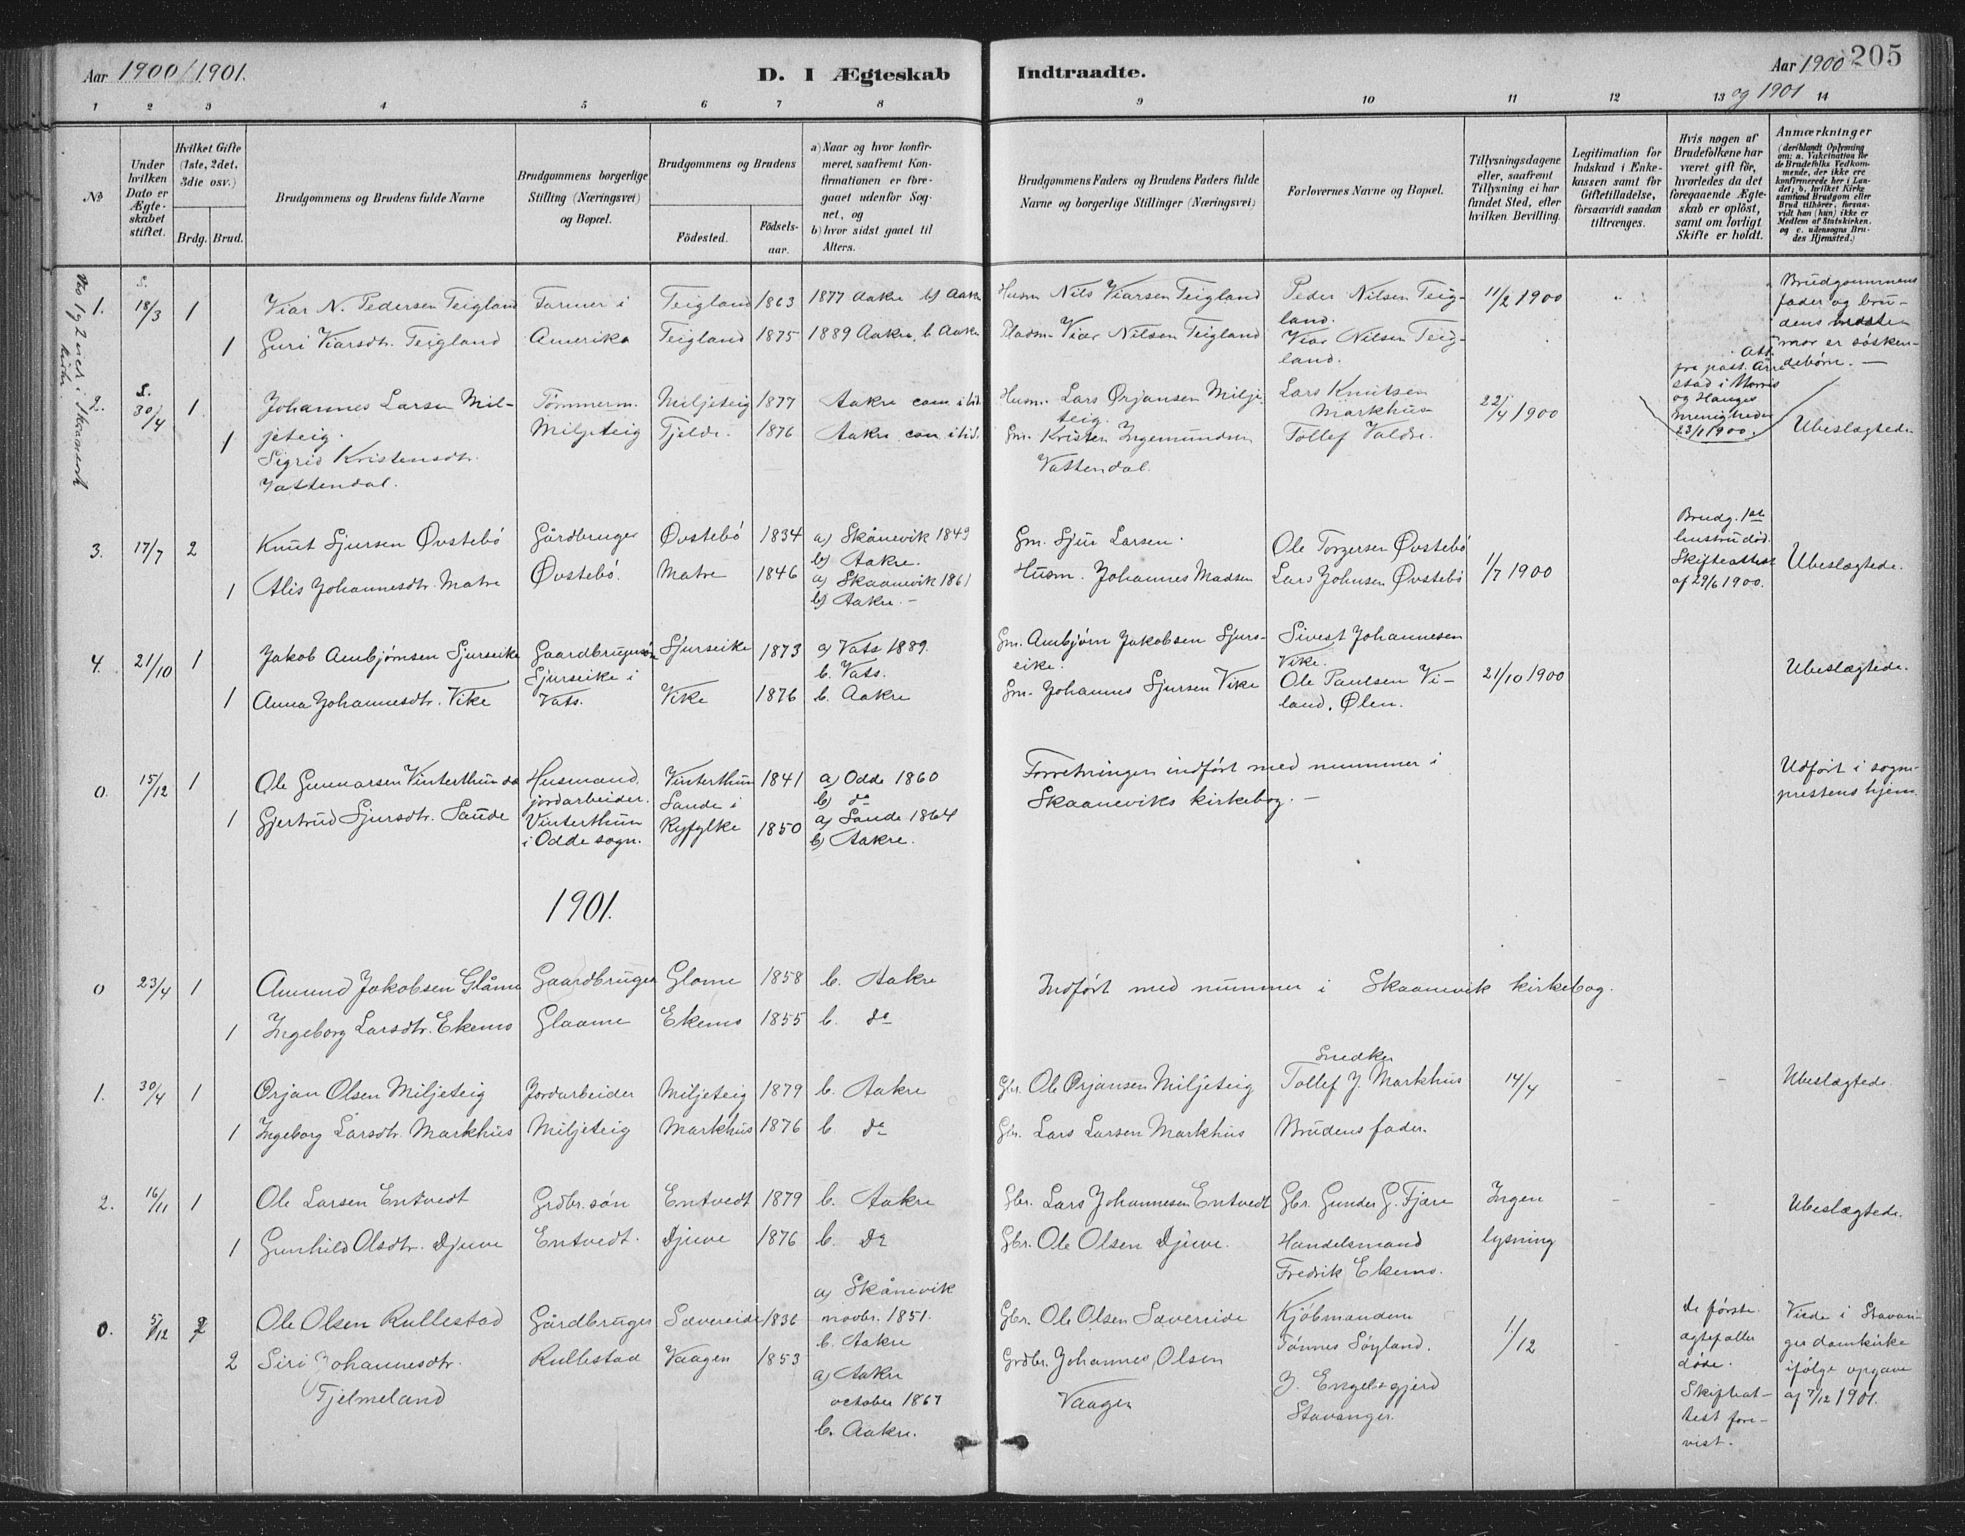 Aar 1900/1901.
D. I Ægteskab
Indtraadte.
Aar 1900
og 1901
205
1 2 3 4 5 6 7 8 9 10 11 12 13 14
No
Under hvilken Dato er Ægteskabet stiftet.
Hvilket Gifte (1ste, 2det, 3die osv.)
Brdg. Brud.
Brudgommens og Brudens fulde Navne
Brudgommens borgerlige Stilling (Næringsvei) og Bopæl.
Brudgommens og Brudens
Fødested.
Fødselsaar.
a) Naar og hvor konfirmeret, saafremt Konfirmationen er foregaaet udenfor Sognet, og
b) hvor sidst gaaet til Alters.
Brudgommens Faders og Brudens Faders fulde Navne og borgerlige Stillinger (Næringsvei)
Forlovernes Navne og Bopæl.
Tillysningsdagene eller, saafremt Tillysning ei har fundet Sted, efter hvilken Bevilling.
Legitimation for Indskud i Enkekassen samt for Giftetilladelse, forsaavidt saadan tiltrænges.
Hvis nogen af Brudefolkene har været gift før, hvorledes da det foregaaende Ægteskab er opløst, samt om lovligt Skifte er holdt.
Anmærkninger
(deriblandt Oplysning om: a. Vakcination for de Brudefolks Vedkommende, der ikke ere konfirmerede her i Landet; b. hvilket Kirkesamfund Brudgom eller Brud tilhører, forsaavidt han (hun) ikke er Medlem af Statskirken. og c. udensogns Brudes Hjemsted.)
No 1 og 2 viede i Skaanevik kirke
1. S. 18/3 1 Viar N. Pedersen Teigland Farmer i Teigland 1863 1877 Aakre b) Aakre Husm Nils Viarsen Teigland Peder Nilsen Teigland. 11/2 1900 Brudgommens fader og brudens moster mor er søskendebørn. —
1 Guri Viarsdtr. Teigland Amerika Teigland 1875 1889 Aakre, b. Aakre Pladsm Viar Nilsen Teigland Viar Nilsen Teigland.
2. S. 30/4 1 Johannes Larsen Miljeteig. Tømmerm. Miljeteig 1877 Aakre com i tid. Husm. Lars Ørjansen Miljeteig. Lars Knutsen Markhus 22/4 1900 Att. fra past. Arrestad i Morris og Hanges menigheder 23/1 1900. Ubeslægtede
1 Sigrid Kristensdtr. Vattendal. Miljeteig Tjelde. 1876 Aakre com i tid. Gm. Kristen Ingemundsen Vattendal. Tollef Valdre.
3. 17/7 2 Knut Sjursen Øvstebö Gårdbruger Øvstebö 1834 a) Skånevik 1849 b) Aakre. Gm. Sjur Larsen. Ole Torgersen Øvstebö 1/7 1900 Brudg. 1ste hustru död. Skifteattest af 29/6 1900. Ubeslægtede.
1 Alis Johannesdtr. Matre Øvstebö. Matre 1846 a) Skaanevik 1861 b) Aakre. — Husm. Johannes Madsen Lars Johnsen Øvstebö
4. 21/10 1 Jakob Ambjørnsen Sjurseike Gaardbrugersøn Sjurseike 1873 a) Vats 1889. b. Vats. Gm. Ambjørn Jakobsen Sjurseike. Sivert Johannesen Vike. 21/10 1900 Ubeslægtede.
1 Anna Johannesdtr. Vike Sjurseike i Vats. Vike 1876 b. Aakre Gm. Johannes Sjursen Vike Ole Paulsen Viland. Ølen.
0. 15/12 1 Ole Gunnarsen Vinterthun Husmand, jordarbeider. Vinterthun 1841 a) Odde 1860 b) do Forretningen indført med nummer i Skaaneviks kirkebog. — Udført i sogneprestens hjem.
1 Gjertrud Sjursdtr. Saude Vinterthun i Odde sogn. Sande i Ryfylke 1850 a) Sande 1864 b) Aakre.
1901.
0 23/4 1 Amund Jakobsen Glåme Gaardbruger Glome 1858 b. Aakre Indført med nummer i Skaanevik kirkebog.
1 Ingeborg Larsdtr. Ekemo Glaame Ekemo 1855 b. do
1. 30/4 1 Ørjan Olsen Miljeteig Jordarbeider Miljeteig 1879 b. Aakre Gbr. Ole Ørjansen Miljeteig Snedker Tollef J. Markhus 14/4 - - Ubeslægtede
1 Ingeborg Larsdtr. Markhus Miljeteig Markhus 1876 b. do Gbr. Lars Larsen Markhus Brudens fader.
2. 16/11 1 Ole Larsen Entvedt Grdbr. søn Entvedt 1879 b. Aakre Gbr. Lars Johannesen Entvedt Gbr. Gunder G. Fjære Ingen lysning - - Ubeslægtede.
1 Gunhild Olsdtr. Djuve Entvedt. Djuve 1876 b. Do Gbr. Ole Olsen Djuve. Handelsmand Fredrik Ekemo.
0. 5/12 2 Ole Olsen Rullestad Gårdbruger Sævereide 1836 a) Skånevik novbr. 1851. b. Aakre Gbr. Ole Olsen Sævereide Kjøbmandene Tønnes Søyland. 1/12 - de første ægtefaller døde. Skifteattest forevist. Viede i Stavanger domkirke ifölge opgave af 7/12 1901.
2 Siri Johannesdtr. Tjelmeland Rullestad Vaagen 1853 a) Aakre october 1867 b. Aakre. Grdbr. Johannes Olsen Vaagen J. Engelsgjerd Stavanger.